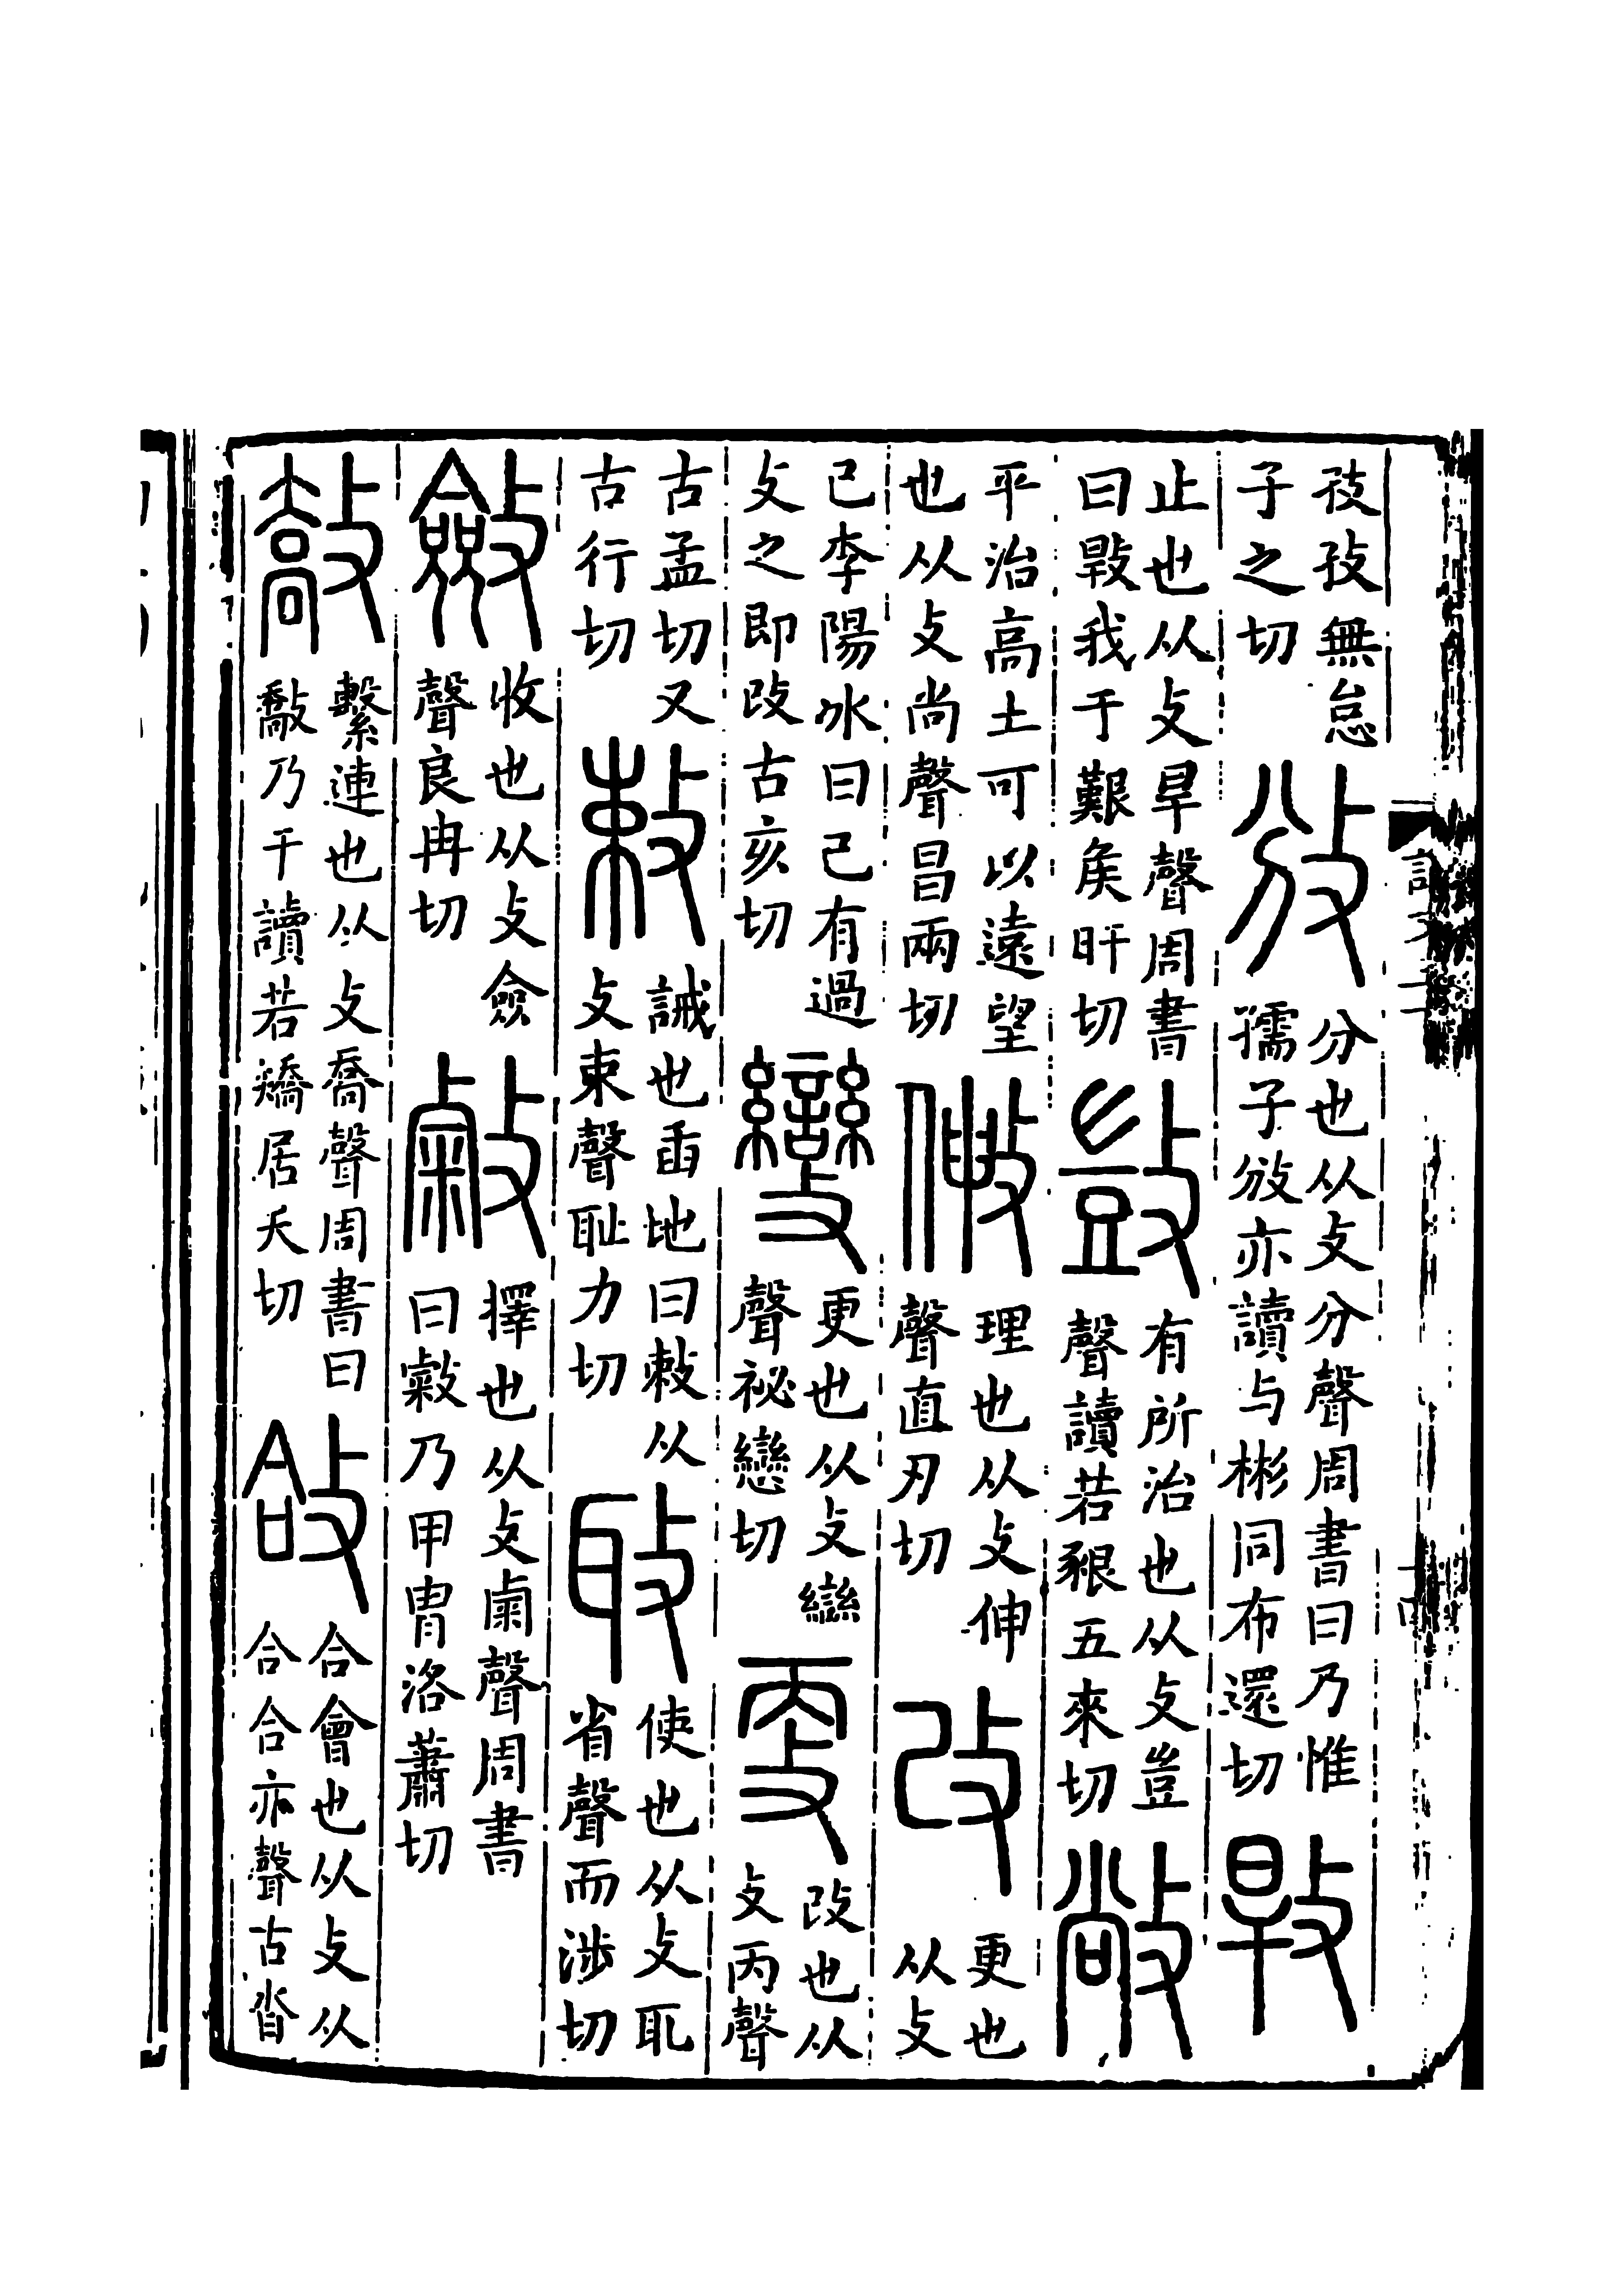 孜孜無怠
子之切
攽
分也从攴分聲周書曰乃惟
孺子攽亦讀与彬同布還切
敤
止也从攴旱聲周書
曰敤我于艱矦旰切
敳
有所治也从攴豈
聲讀若豤五來切
敞
平治高土可以遠望
也从攴尚聲昌兩切
敒
理也从攴伸
聲直刃切
改
更也
从攴
己李陽冰曰己有過
攴之即改古亥切
變
更也从攴䜌
聲祕戀切
㪅
改也从
攴丙聲
古孟切又
古行切
敕
誡也臿地曰敕从
攴束聲恥力切
𢽟
使也从攴耴
省聲而涉切
斂
收也从攴僉
聲良冉切
敹
擇也从攴𠕁聲周書
曰敹乃甲冑洛蕭切
敽
繫連也从攴喬聲周書曰
敽乃干讀若矯居夭切
敆
合會也从攴从
合合亦聲古沓